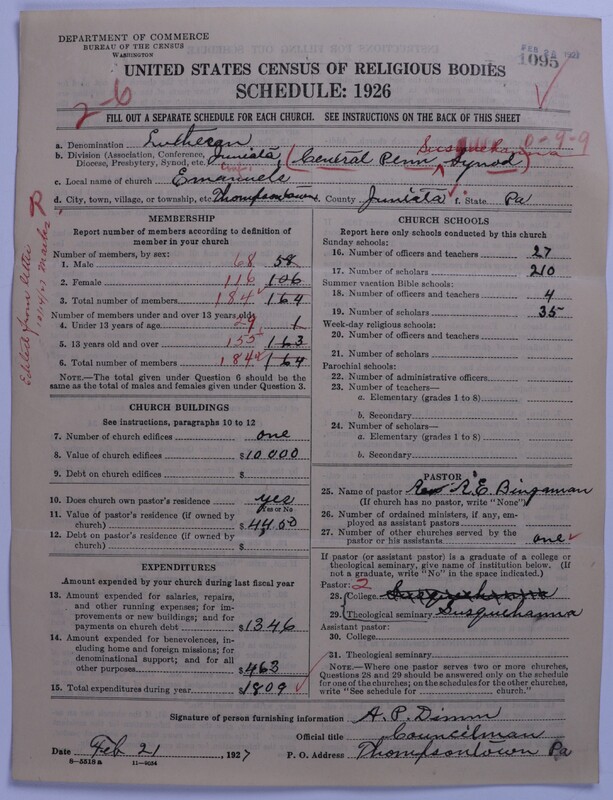 DEPARTMENT OF COMMERCE
BUREAU OF THE CENSUS
WASHINGTON
1095
UNITED STATES CENSUS OF RELIGIOUS BODIES
SCHEDULE: 1926
2-6
FILL OUT A SEPARATE SCHEDULE FOR EACH CHURCH. SEE INSTRUCTIONS ON THE BACK OF THIS SHEET
a. Denomination Lutheran 0-9-9
Susquehanna
b. Division (Association, Conference, Diocese, Presbytery, Synod, etc.) Juniata (Central Penn Synod)
c. Local name of church Emanuels
d. City, town, village, or township, etc. Thompsontown e. County Juniata f. State Pa
Edited from letter
MEMBERSHIP
Report number of members according to definition of
member in your church
Number of members, by sex:
1. Male 68 58
2. Female 116 106
3. Total number of members 184 164
Number of members under and over 13 years old:
4. Under 13 years of age 29 1
5. 13 years old and over 155 163
6. Total number of members 184 164
NOTE.—The total given under Question 6 should be the
same as the total of males and females given under Question 3.
CHURCH BUILDINGS
See instructions, paragraphs 10 to 12
7. Number of church edifices one
8. Value of church edifices $10000
9. Debt on church edifices $
10. Does church own pastor's residence yes
Yes or No
11. Value of pastor's residence (if owned by
church) $4400
12. Debt on pastor's residence (if owned by
church) $
EXPENDITURES
Amount expended by your church during last fiscal year
13. Amount expended for salaries, repairs,
and other running expenses; for im-
provements or new buildings; and for
payments on church debt $1346
14. Amount expended for benevolences, in-
cluding home and foreign missions; for
denominational support; and for all
other purposes $463
15. Total expenditures during year $1809
CHURCH SCHOOLS
Report here only schools conducted by this church
Sunday schools:
16. Number of officers and teachers 27
17. Number of scholars 210
Summer vacation Bible schools:
18. Number of officers and teachers 4
19. Number of scholars 35
Week-day religious schools:
20. Number of officers and teachers
21. Number of scholars
Parochial schools:
22. Number of administrative officers
23. Number of teachers—
a. Elementary (grades 1 to 8)
b. Secondary
24. Number of scholars—
a. Elementary (grades 1 to 8)
b. Secondary
PASTOR
25. Name of pastor Rev R.E. Bingaman
(If church has no pastor, write "None")
26. Number of ordained ministers, if any, em-
ployed as assistant pastors
27. Number of other churches served by the
pastor or his assistants one
If pastor (or assistant pastor) is a graduate of a college or
theological seminary, give name of institution below. (If
not a graduate, write "No" in the space indicated.)
Pastor: 2
28. College Susquehanna
29. Theological seminary Susquehanna
Assistant pastor:
30. College
31. Theological seminary
NOTE.—Where one pastor serves two or more churches,
Questions 28 and 29 should be answered only on the schedule
for one of the churches; on the schedules for the other churches,
write "See schedule for church."
Signature of person furnishing information A. P. Dimm
Official title Councilman
Date Feb 21, 1927 P. O. Address Thompsontown Pa
8-5518 a 11-9034